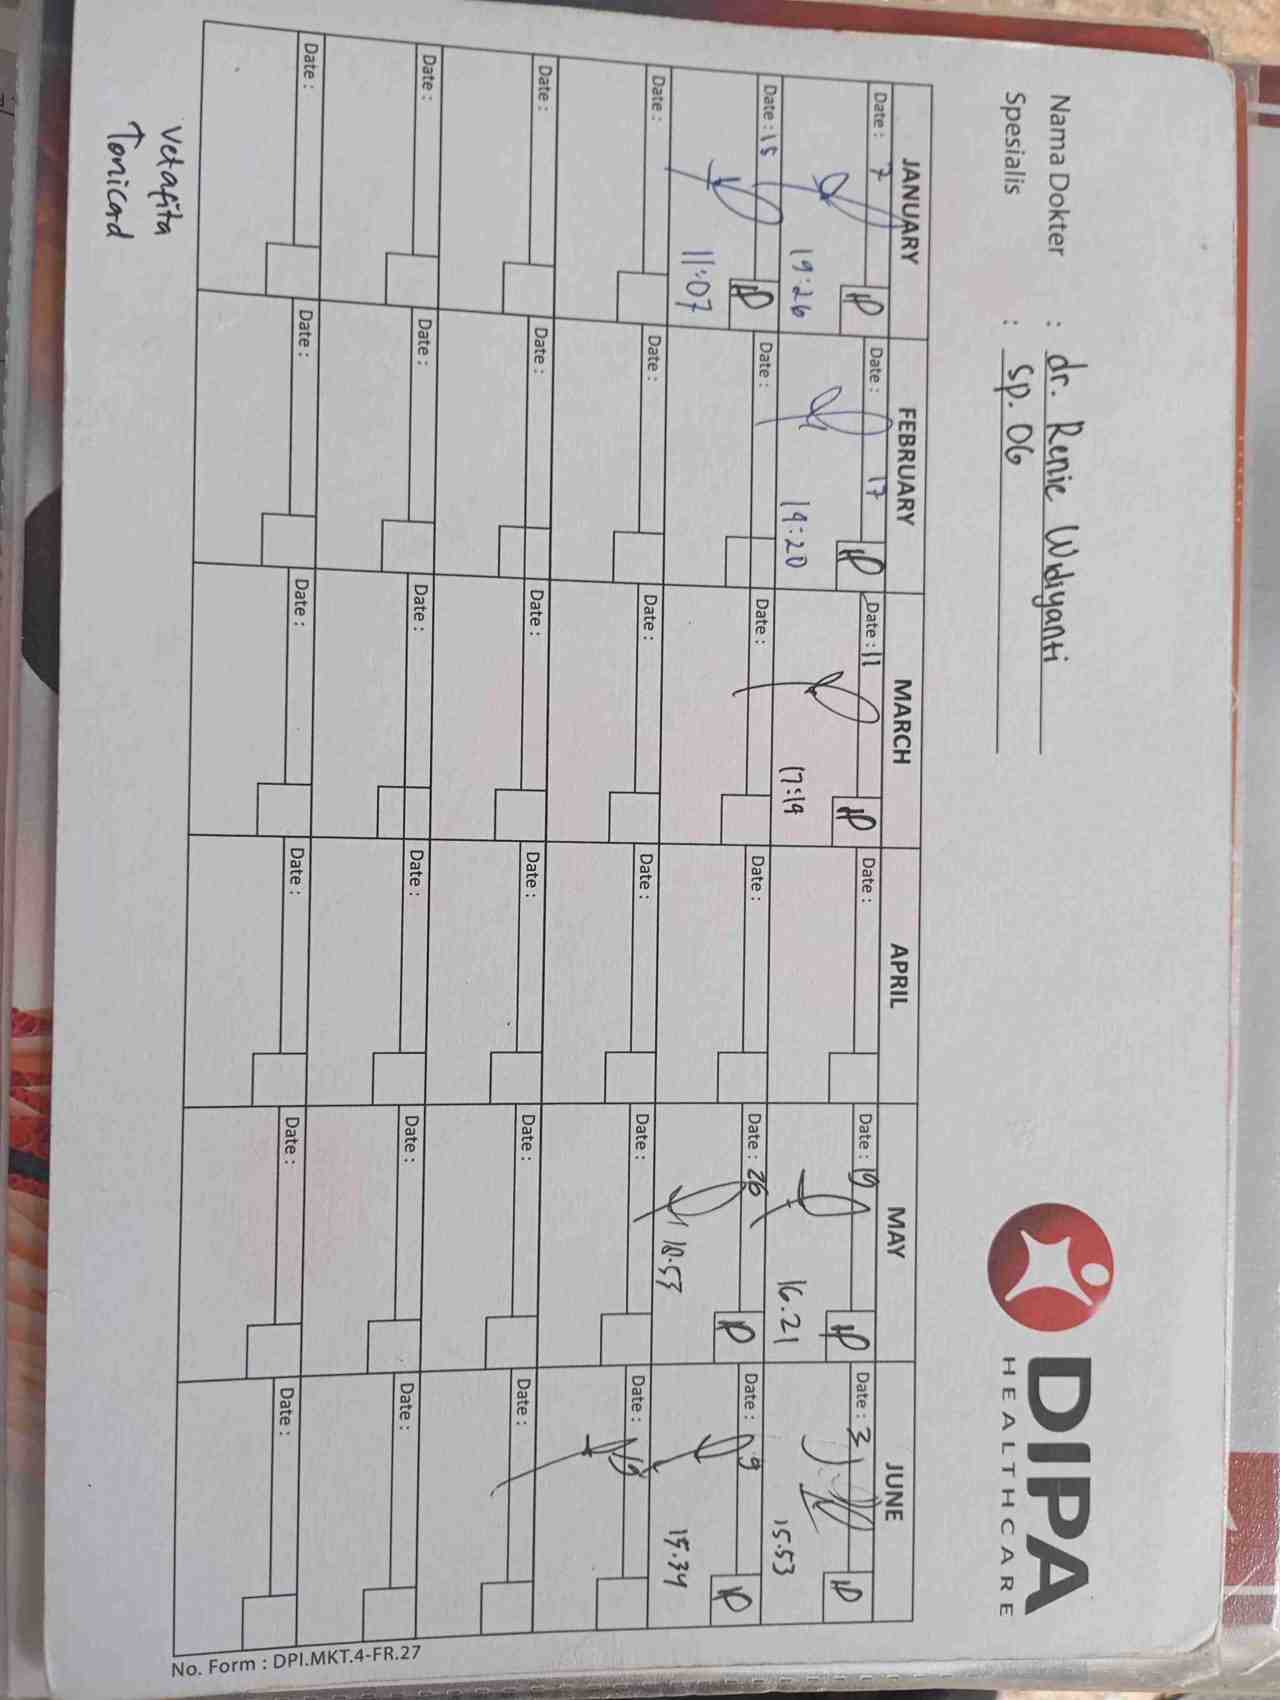 Nama Dokter : dr. Renie Widiyanti
Spesialis : Sp. OG
DIPA
HEALTHCARE
JANUARY FEBRUARY MARCH APRIL MAY JUNE
Date : 7 Date : 17 Date : 11 Date : Date : 19 Date : 3
19:26 19:20 17:19 16.21 15.53
Date : 15 Date : Date : Date : Date : 26 Date : 9
11:07 18.53 15.34
Date : Date : Date : Date : Date : Date :
Date : Date : Date : Date : Date : Date :
Date : Date : Date : Date : Date : Date :
Date : Date : Date : Date : Date : Date :
Vetafita
Tonicard
No. Form : DPI.MKT.4-FR.27